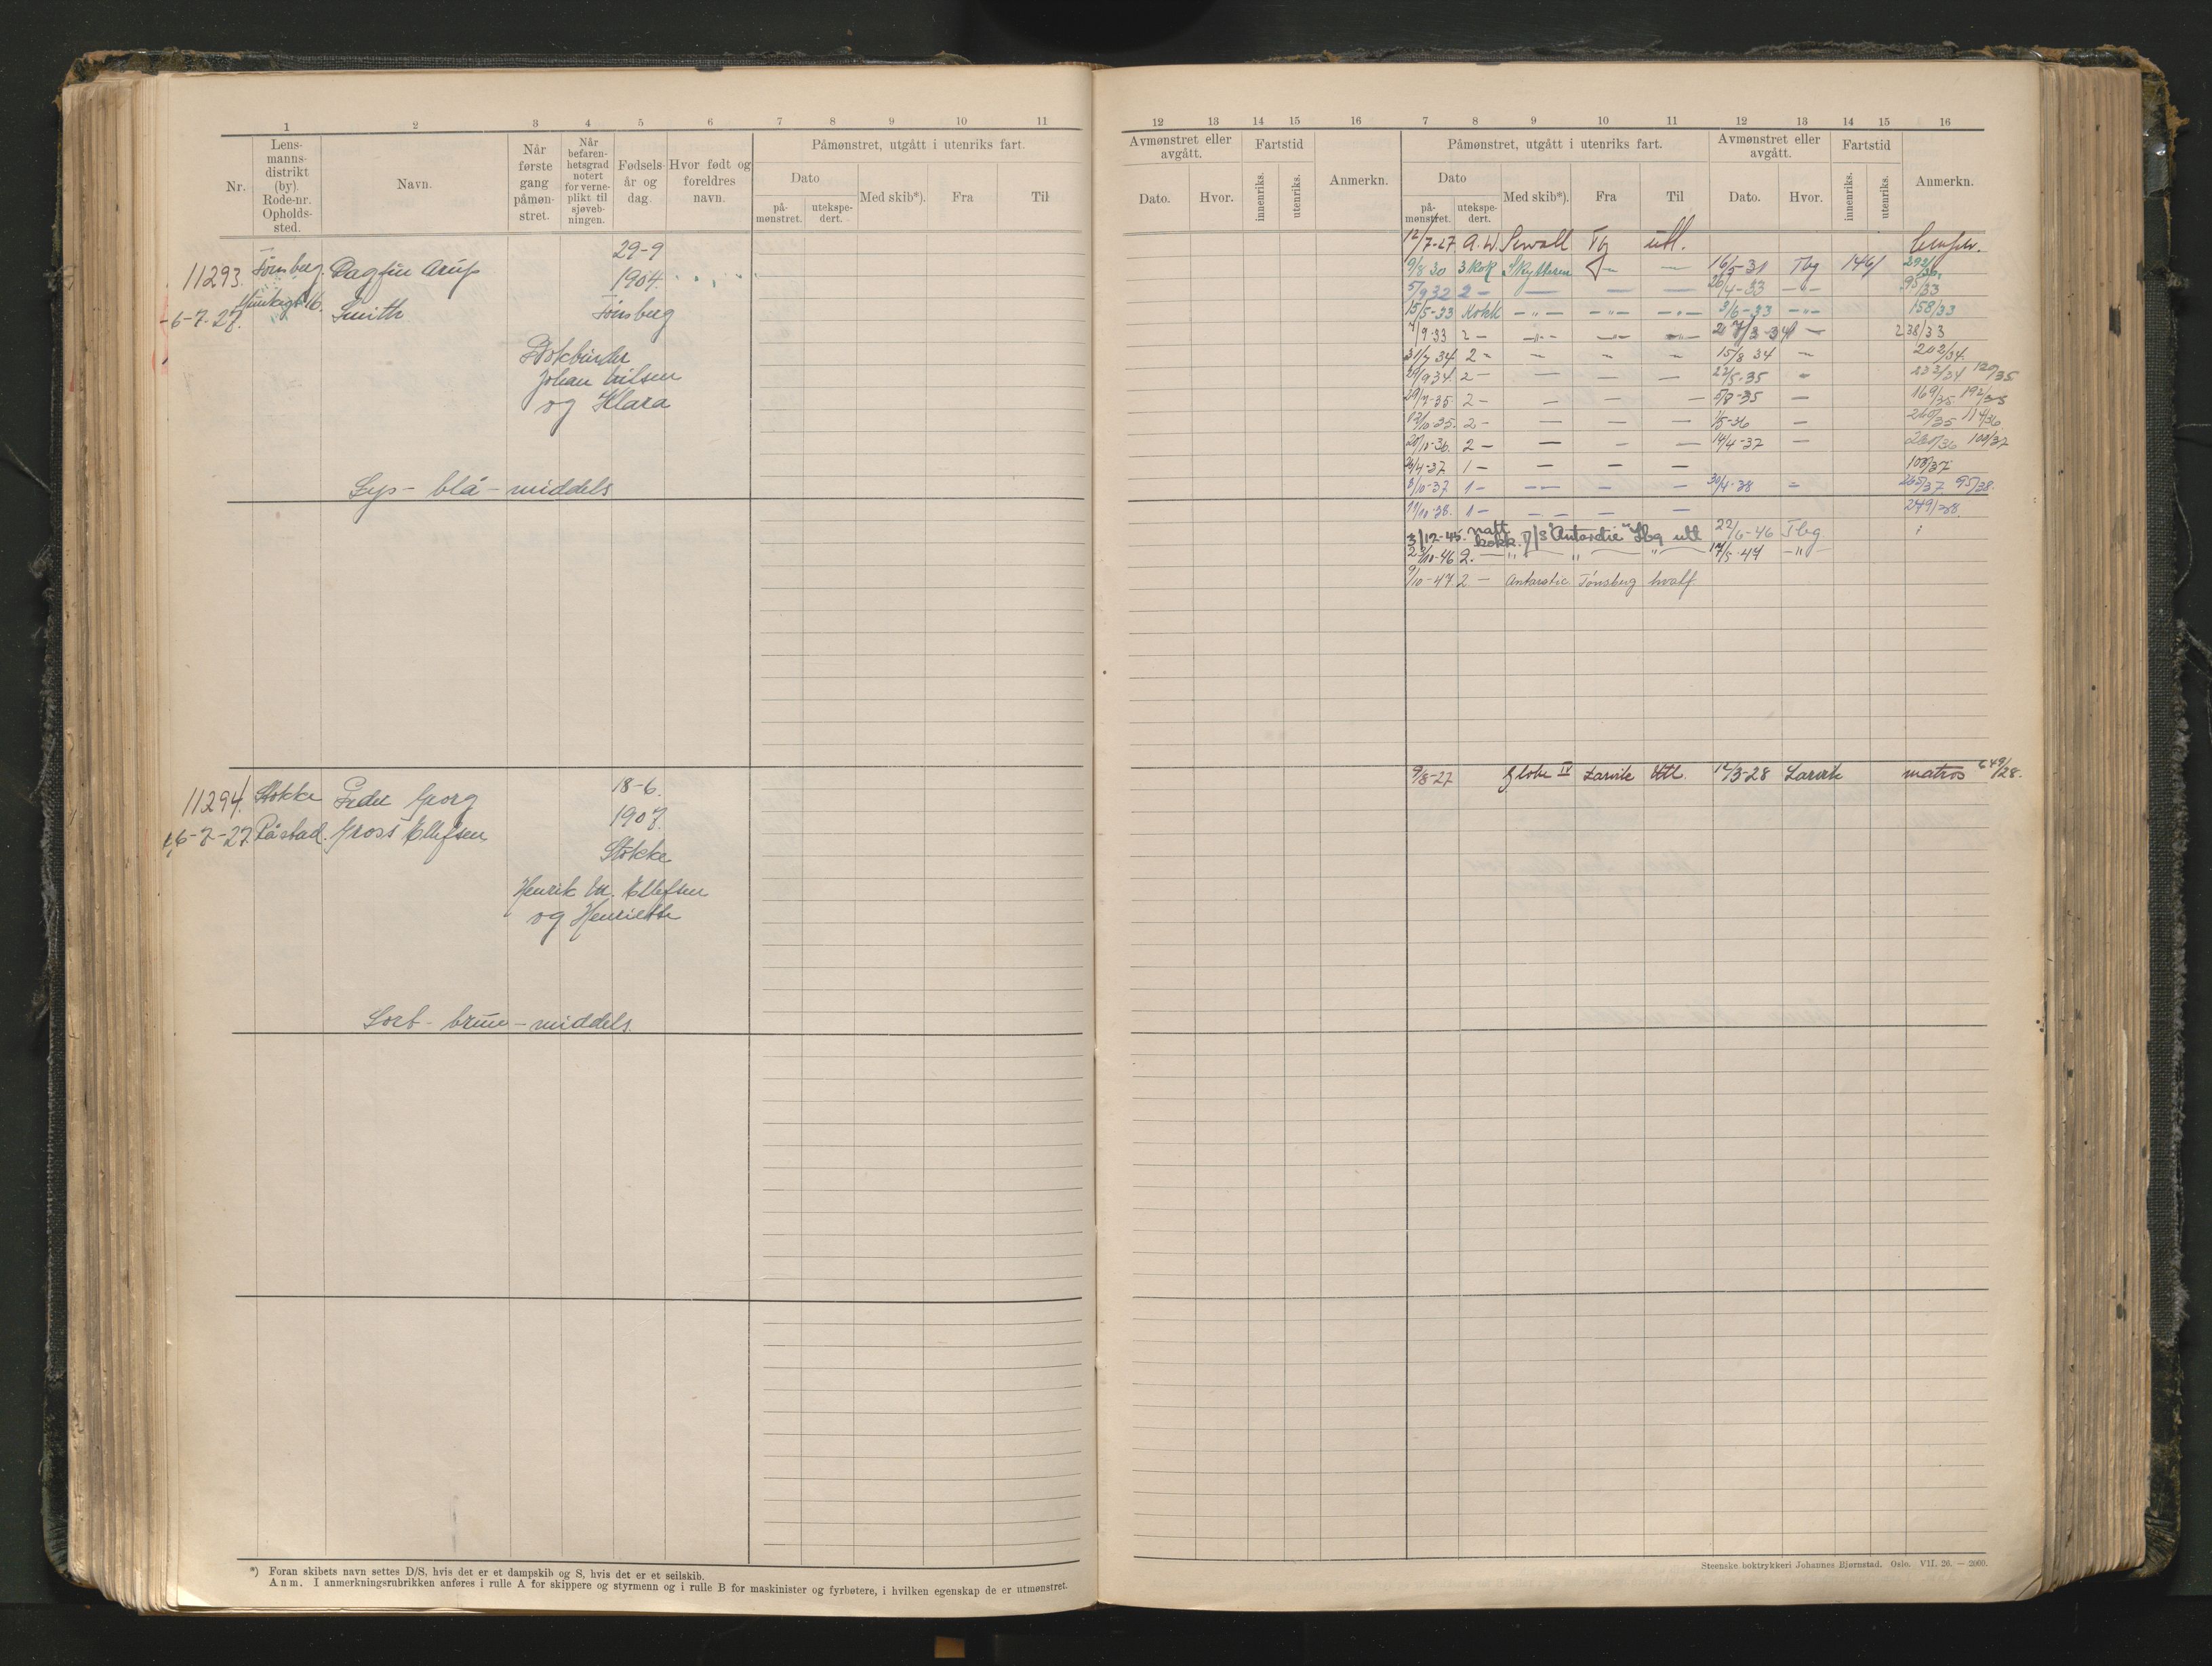 1 2 3 4 5 6 7 8 9 10 11
Nr.
Lens-
manns-
distrikt
(by).
Rode-nr.
Opholds-
sted.
Navn.
Når
første
gang
påmøn-
stret.
Når
befaren-
hetsgrad
notert
for verne-
plikt til
sjøveb-
ningen.
Fødsels-
år og
dag.
Hvor født og
foreldres
navn.
Påmønstret, utgått i utenriks fart.
Dato
på-
mønstret.
utekspe-
dert.
Med skib*).
Fra
Til
11293. Tønsberg. Dagfin Arup
29-9
1904.
-6-7-27. 16. Smith
Tønsberg
Johan Nilsen
og Klara
Lys - blå - middels
11294. Stokke Peder Georg
18-6.
1907.
6-7-27. Råstad. Gross Ellefsen
Stokke
Henrik M. Ellefsen
og Henriette
Sort - brun - middels.
*) Foran skibets navn settes D/S, hvis det er et dampskib og S, hvis det er et seilskib.
Anm. I anmerkningsrubrikken anføres i rulle A for skippere og styrmenn og i rulle B for maskinister og fyrbøtere, i hvilken egenskap de er utmønstret.
12 13 14 15 16 7 8 9 10 11 12 13 14 15 16
Avmønstret eller
avgått.
Dato.
Hvor.
Fartstid
innenriks.
utenriks.
Anmerkn.
Påmønstret, utgått i utenriks fart.
Dato
på-
mønstret.
utekspe-
dert.
Med skib*).
Fra
Til
Avmønstret eller
avgått.
Dato.
Hvor.
Fartstid
innenriks.
utenriks.
Anmerkn.
12/7-27 A.W. Sewall Tg utl.
9/8 30 3 kok Skytteren — — 16/5-31 Tbg 146/
5/9 32 2 — — — — 26/4-33 —"— 95/33
15/5-33 Kokk —"— —"— —"— 3/6-33 —"— 158/33
4/9-33 2 — —"— —"— —"— — 238/33
31/7 34 2 — — — — 15/8 34 — 202/34
29/9 34 2 — — — — 22/5-35 — 233/34 120/35
29/7-35 2 — — — — 5/8-35 — 169/35 192/35
12/10-35. 2 — — — — 1/5-36 — 260/35 114/36
20/10-36. 2 — — — — 14/4-37 — 280/36 108/37
26/4-37 1 — — — — 108/37
8/10-37 1 — — — — 30/4-38 — 265/37 95/38.
11/10-38. 1 — — — — 249/38.
3/12-45. natt
kokk. D/S "Antarctic" Sbg utl 22/6-46 Tbg
23/10-46 2. — " " " 14/5-47 —"—
9/10-47 2. — Antarctic Tønsberg hvalf.
9/8-27 Globe IV Larvik Utl. 12/5-28 Larvik matros 649/28.
Steenske boktrykkeri Johannes Bjørnstad. Oslo. VII. 26. — 2000.